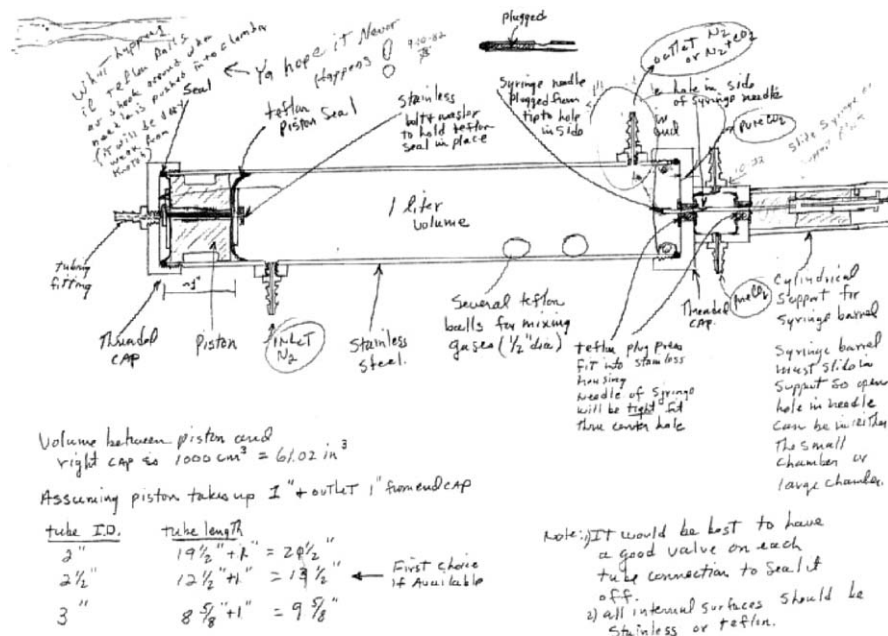 What happens
if teflon balls
or shook around when
needle is pushed into chamber
(it will be
week from
Ya hope it Never
Happens!
9-10-82
plugged
outlet N2
or N2+CO2
hole in side
of syringe needle
Syringe needle
plugged from
tip to hole
in side
pure CO2
Seal
teflon
Piston Seal
Stainless
bolt + washer
to hold teflon
seal in place
1 liter
volume
tubing
fitting
~1"
Threaded
CAP
Piston
INLET
N2
Stainless
Steel.
Several teflon
balls for mixing
gases (1/2" dia)
Threaded
CAP.
pure CO2
teflon plug press
fit into stainless
housing
Needle of Syringe
will be tight fit
thru center hole
Cylindrical
Support for
Syringe barrel
Syringe barrel
must slide in
Support so open
hole in needle
can be in either
The small
chamber or
large chamber.
Volume between piston and
right cap is 1000 cm3 = 61.02 in3
Assuming piston takes up 1" + outlet 1" from end cap
tube I.D. tube length
2" 19 1/2" + 1" = 20 1/2"
2 1/2" 12 1/2" + 1" = 13 1/2" ← First choice
if Available
3" 8 5/8" + 1" = 9 5/8"
Note: 1) It would be best to have
a good valve on each
tube connection to seal it
off.
2) all internal surfaces should be
Stainless or teflon.